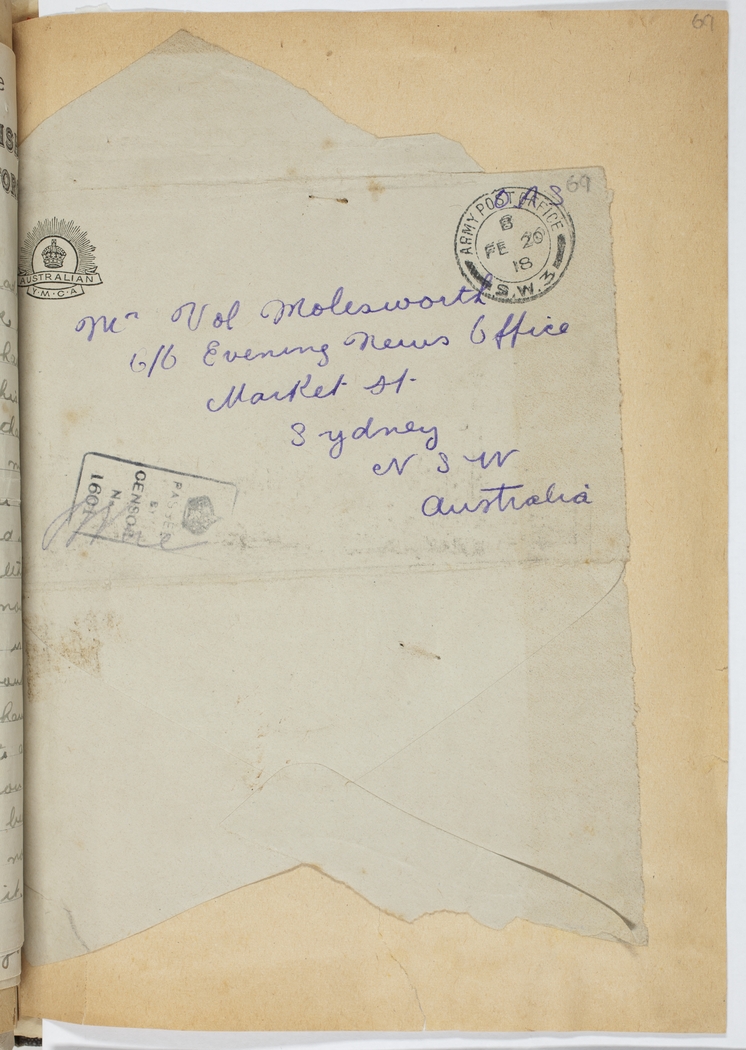 69
O A S
69
ARMY POST OFFICE
B
FE 20
18
S.W.3
AUSTRALIAN
Y.M.C.A
Mr Vol Molesworth
c/o Evening News Office
Market St.
Sydney
N S W
Australia
PASSED
BY
CENSOR
No
1601